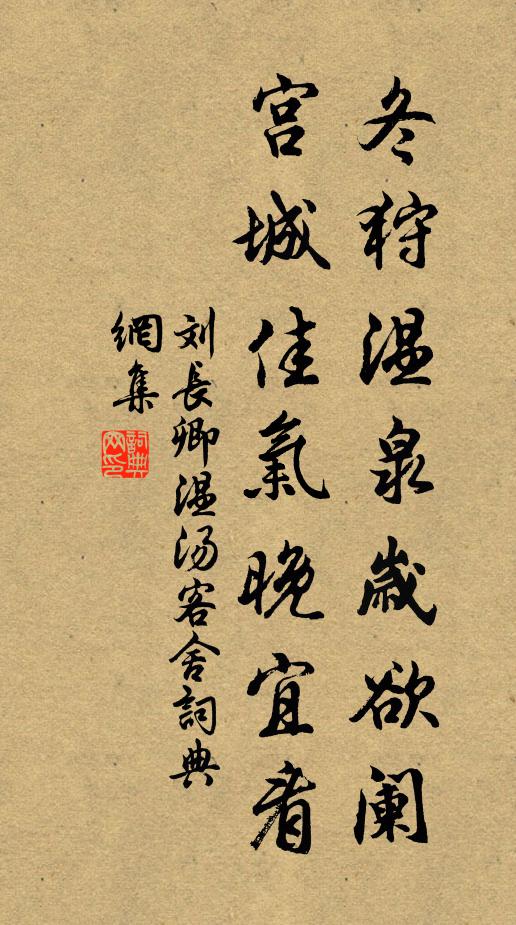 冬狩温泉歳欲阑
宫城佳氣晚宜看
刘長卿温汤客舍詞典
網集
詞典网印